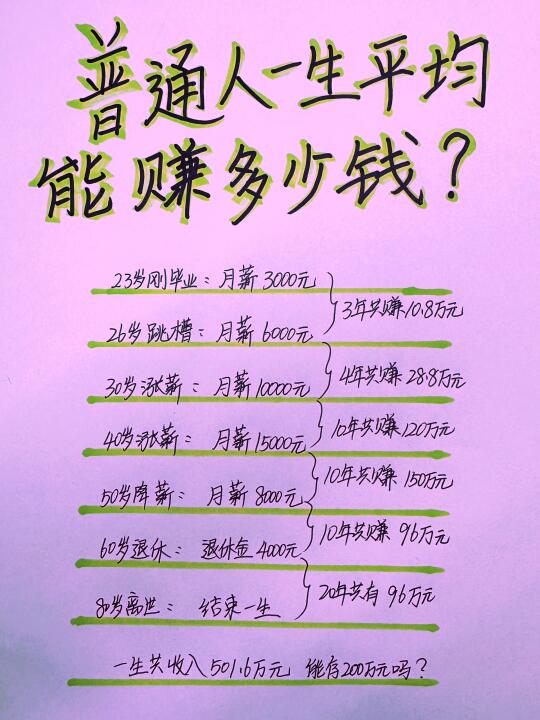 普通人一生平均
能赚多少钱?
23岁刚毕业：月薪3000元
3年共赚10.8万元
26岁跳槽：月薪6000元
4年共赚28.8万元
30岁涨薪：月薪10000元
10年共赚120万元
40岁涨薪：月薪15000元
10年共赚150万元
50岁降薪：月薪8000元
10年共赚96万元
60岁退休：退休金4000元
20年共有96万元
80岁离世：结束一生
一生共收入501.6万元 能存200万元吗?